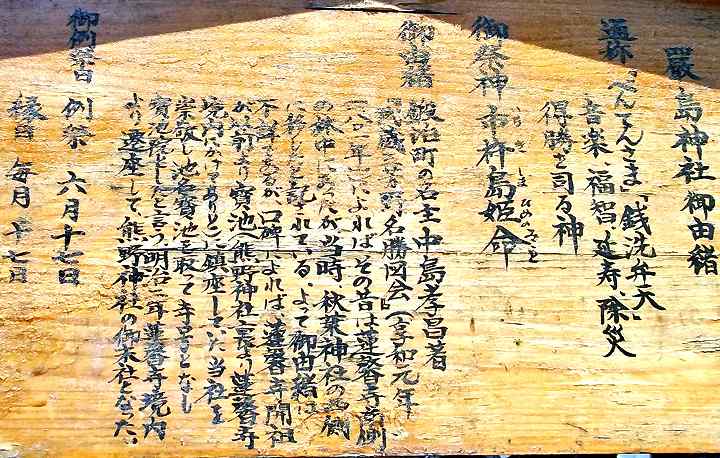 厳島神社御由緒
通称 "べんてんさま" "銭洗弁天"
音楽、福智、延寿、除災
得勝を司る神
御祭神 市杵島姫命
いちきしまひめのみこと
御由緒 鍛冶町の名主中島孝昌著
『武蔵三芳野名勝図会』(享和元年
一八〇一年)によれば、その昔は蓮馨寺南側
の林中にあったが、当時、秋葉神社の西側
に移したと記されている。よって御由緒は
不詳であるが、口碑によれば、蓮馨寺開祖
が以前より寳池(熊野神社裏より蓮馨寺
境内にかけてありと)に鎮座していた当社を
崇敬し池名寳池を取って寺号となし
寳池院としたと言う。明治二年蓮馨寺境内
より遷座して、熊野神社の御末社となった。
御例祭日 例祭 六月十七日
縁日 毎月 十七日